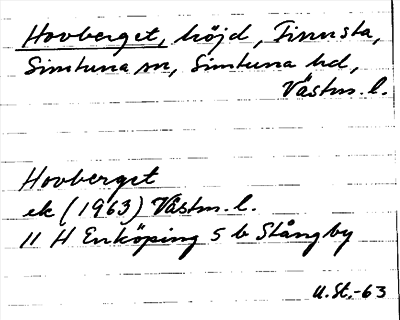 Hovberget, höjd, Finnsta,
Simtuna sn, Simtuna hd,
Västm. l.
Hovberget
ek (1963) Västm. l.
11 H Enköping 5 b Stångby
U.St.-63